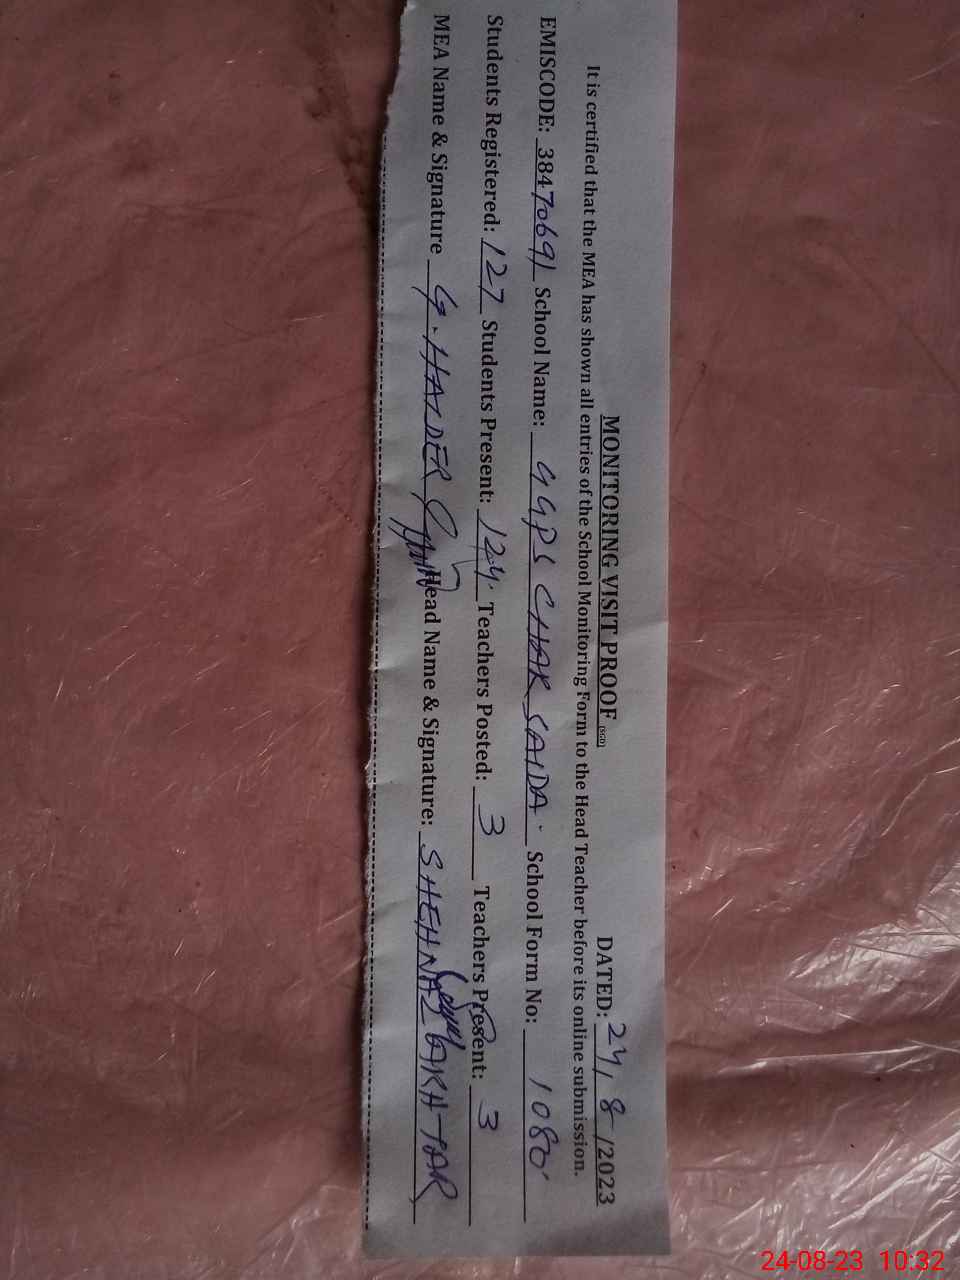 MONITORING VISIT PROOF (SGD) DATED: 24/8/2023
It is certified that the MEA has shown all entries of the School Monitoring Form to the Head Teacher before its online submission.
EMISCODE: 38470691 School Name: GGPS CHAK SAIDA. School Form No: 1080
Students Registered: 127 Students Present: 124. Teachers Posted: 3 Teachers Present: 3
MEA Name & Signature G. HAIDER Head Name & Signature: SHEHNAZ AKHTAR
24-08-23 10:32